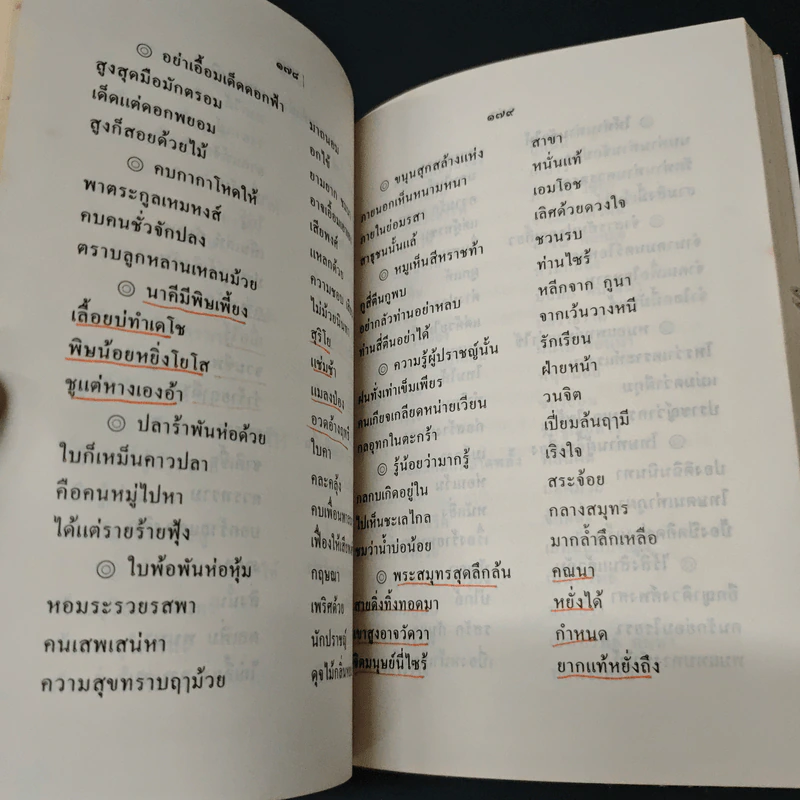 ๑๗๘
◎ อย่าเอื้อมเด็ดดอกฟ้า มาถนอม
สูงสุดมือมักตรอม อกไข้
เด็ดแต่ดอกพยอม ยามยาก
สูงก็สอยด้วยไม้ อาจเอื้อม
◎ คบกากาโหดให้ เสียพงศ์
พาตระกูลเหมหงส์ แหลกด้วย
คบคนชั่วจักปลง ความชอบ
ตราบลูกหลานเหลนม้วย ไม่ม้วยนินทา
◎ นาคีมีพิษเพี้ยง สุริโย
เลื้อยบ่ทำเดโช แช่มช้า
พิษน้อยหยิ่งโยโส แมลงป่อง
ชูแต่หางเองอ้า อวดอ้างฤทธี
◎ ปลาร้าพันห่อด้วย ใบคา
ใบก็เหม็นคาวปลา คละคลุ้ง
คือคนหมู่ไปหา คบเพื่อน
ได้แต่รายร้ายฟุ้ง เฟื่องให้
◎ ใบพ้อพันห่อหุ้ม กฤษณา
หอมระรวยรสพา เพริศด้วย
คนเสพเสน่หา นักปราชญ์
ความสุขทราบฤๅม้วย ดุจไม้กลิ่น
๑๗๙
◎ ขนุนสุกสล้างแห่ง สาขา
ภายนอกเห็นหนามหนา หนั่นแท้
ภายในย่อมรสา เอมโอช
สาธุชนนั้นแล้ เลิศด้วยดวงใจ
◎ หมูเห็นสีหราชท้า ชวนรบ
กูสี่ตีนกูพบ ท่านไซร้
อย่ากลัวท่านอย่าหลบ หลีกจาก กูนา
ท่านสี่ตีนอย่าได้ จากเว้นวางหนี
◎ ความรู้ผู้ปราชญ์นั้น รักเรียน
ฝนทั่งเท่าเข็มเพียร ฝ่ายหน้า
คนเกียจเกลียดหน่ายเวียน วนจิต
กลอุทกในตะกร้า เปี่ยมล้นฤๅมี
◎ รู้น้อยว่ามากรู้ เริงใจ
กลกบเกิดอยู่ใน สระจ้อย
ไปเห็นชะเลไกล กลางสมุทร
ชมว่าน้ำบ่อน้อย มากล้ำลึกเหลือ
◎ พระสมุทรสุดลึกล้น คณนา
สายดิ่งทิ้งทอดมา หยั่งได้
เขาสูงอาจวัดวา กำหนด
จิตมนุษย์นี้ไซร้ ยากแท้หยั่งถึง